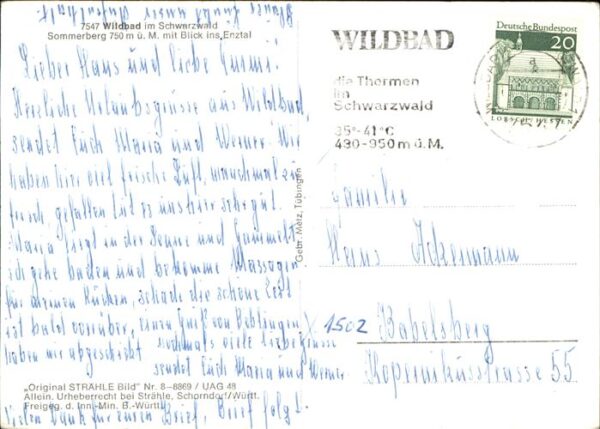 7547 Wildbad im Schwarzwald
Sommerberg 750 m ü. M. mit Blick ins Enztal
Lieber Hans und liebe Gummi!
Herzliche Urlaubsgrüsse aus Wildbad,
sendet Euch Maria und Werner. Wir
haben hier viel frische Luft, manchmal zu
frisch, gefallen tut es uns hier sehr gut.
Maria liegt in der Sonne und Gammelt
ich gehe baden und bekomme Massagen
für meinen Rücken, schade die schöne Zeit
ist bald vorüber, einen Gruß von Böblingen
haben wir abgeschickt nochmals viele liebe Grüsse
sendet Euch Maria und Werner
„Original STRÄHLE Bild" Nr. 8-8869 / UAG 48
Allein. Urheberrecht bei Strähle, Schorndorf/Württ.
Freigeg. d. Inn.-Min. B.-Württ.
Vielen Dank für euren Brief, Brief folgt!
Gebr. Metz, Tübingen
WILDBAD
die Thermen
im
Schwarzwald
35°-41°C
430-950 m ü. M.
Deutsche Bundespost
20
LORSCH/HESSEN
Familie
Hans Ackermann
X 1502 Babelsberg
Kopernikusstrasse 55